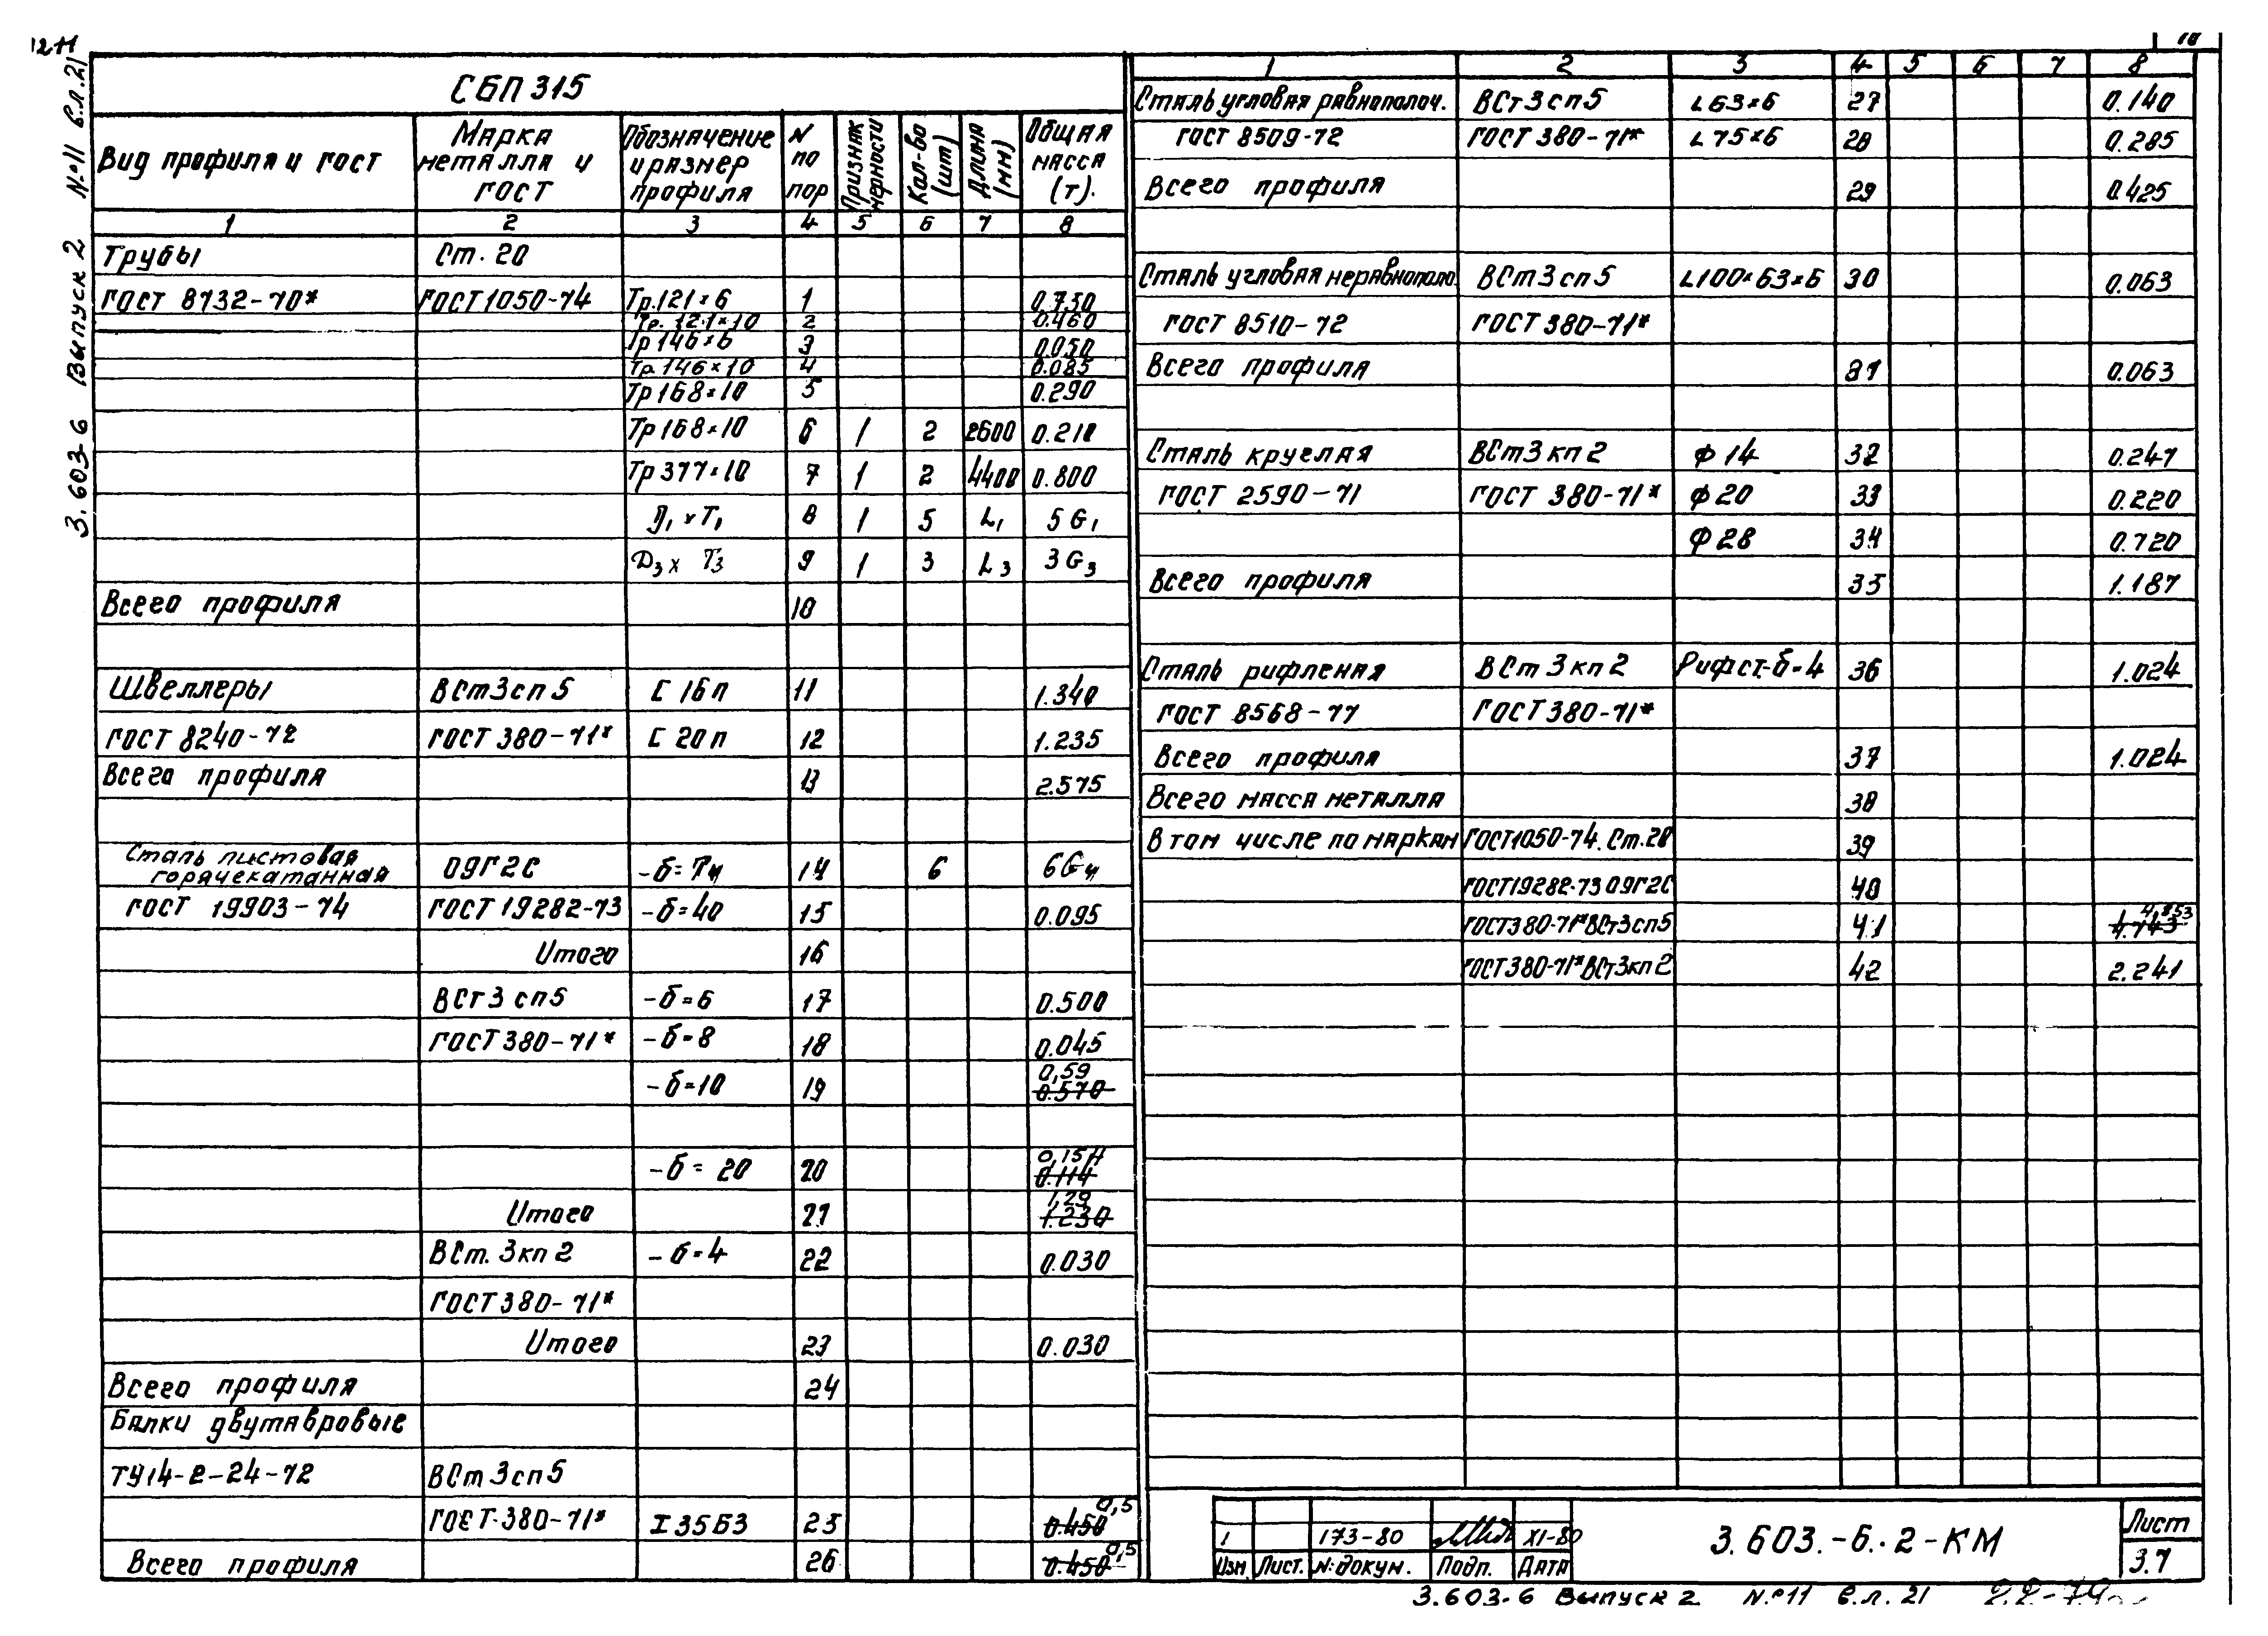 12 H
3.603-6 Выпуск 2 № 11 в.л.21
СБП 315
Вид профиля и гост | Марка металла и гост | Обозначение и размер профиля | N по пор | Признак мерности | Кол-во (шт) | Длина (мм) | Общая масса (т).
1 | 2 | 3 | 4 | 5 | 6 | 7 | 8
Трубы | Ст. 20
ГОСТ 8732-70* | ГОСТ 1050-74 | Тр.121×6 | 1 | 0.730
Тр. 121×10 | 2 | 0.460
Тр 146×6 | 3 | 0.050
Тр. 146×10 | 4 | 0.085
Тр 168×10 | 5 | 0.290
Тр 168×10 | 6 | 1 | 2 | 2600 | 0.210
Тр 377×10 | 7 | 1 | 2 | 4400 | 0.800
Д₁ × Т₁ | 8 | 1 | 5 | L₁ | 5 G₁
Д₃ × Т₃ | 9 | 1 | 3 | L₃ | 3 G₃
Всего профиля | 10
Швеллеры | ВСт3сп5 | [ 16п | 11 | 1.340
ГОСТ 8240-72 | ГОСТ 380-71* | [ 20п | 12 | 1.235
Всего профиля | 13 | 2.575
Сталь листовая горячекатанная | 09Г2С | -δ=Т₄ | 14 | 6 | 6G₄
ГОСТ 19903-74 | ГОСТ 19282-73 | -δ=40 | 15 | 0.095
Итого | 16
ВСт3сп5 | -δ=6 | 17 | 0.500
ГОСТ 380-71* | -δ=8 | 18 | 0.045
-δ=10 | 19 | 0,59 0.570
-δ=20 | 20 | 0,154 0.114
Итого | 21 | 1,29 1.230
ВСт.3кп2 | -δ=4 | 22 | 0.030
ГОСТ 380-71*
Итого | 23 | 0.030
Всего профиля | 24
Балки двутавровые
ТУ14-2-24-72 | ВСт3сп5
ГОСТ-380-71* | I 35Б3 | 25 | 0.450 0,5
Всего профиля | 26 | 0.450 0,5
1 | 2 | 3 | 4 | 5 | 6 | 7 | 8
Сталь угловая равнополоч. | ВСт3сп5 | L 63×6 | 27 | 0.140
ГОСТ 8509-72 | ГОСТ 380-71* | L 75×6 | 28 | 0.285
Всего профиля | 29 | 0.425
Сталь угловая неравнополо. | ВСт3сп5 | L100×63×6 | 30 | 0.063
ГОСТ 8510-72 | ГОСТ 380-71*
Всего профиля | 31 | 0.063
Сталь круглая | ВСт3кп2 | Ф 14 | 32 | 0.247
ГОСТ 2590-71 | ГОСТ 380-71* | Ф 20 | 33 | 0.220
Ф 28 | 34 | 0.720
Всего профиля | 35 | 1.187
Сталь рифленая | ВСт3кп2 | Риф.ст-δ=4 | 36 | 1.024
ГОСТ 8568-77 | ГОСТ 380-71*
Всего профиля | 37 | 1.024
Всего масса металла | 38
В том числе по маркам | ГОСТ1050-74. Ст.20 | 39
ГОСТ19282-73 09Г2С | 40
ГОСТ380-71* ВСт3сп5 | 41 | 4,853 4.743
ГОСТ380-71* ВСт3кп2 | 42 | 2.241
1 | 173-80 | XI-80
Изм. | Лист. | N: докум. | Подп. | Дата
3.603.-6.·2-КМ
Лист
3.7
3.603-6 Выпуск 2 № 11 в.л. 21